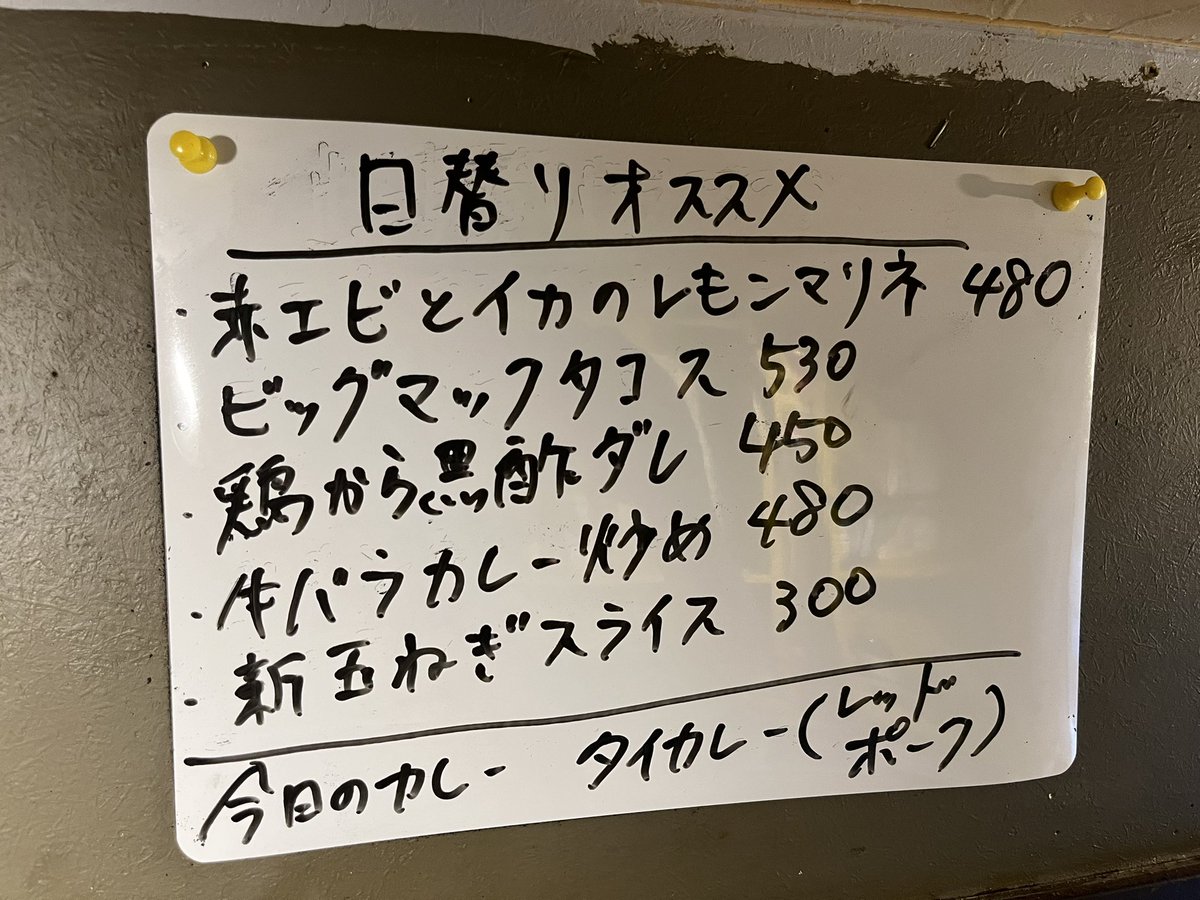 日替りオススメ
・赤エビとイカのレモンマリネ 480
・ビッグマックタコス 530
・鶏から黒酢ダレ 450
・牛バラカレー炒め 480
・新玉ねぎスライス 300
今日のカレー タイカレー(レッドポーク)